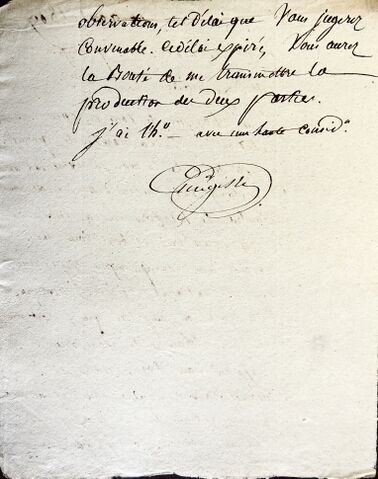 observations, tel délai que Vous jugerez
convenable. Ce délai expiré, Vous aurez
la Bonté de me transmettre la
production des deux parties.
j'ai l'h.r — avec une haute consid.n